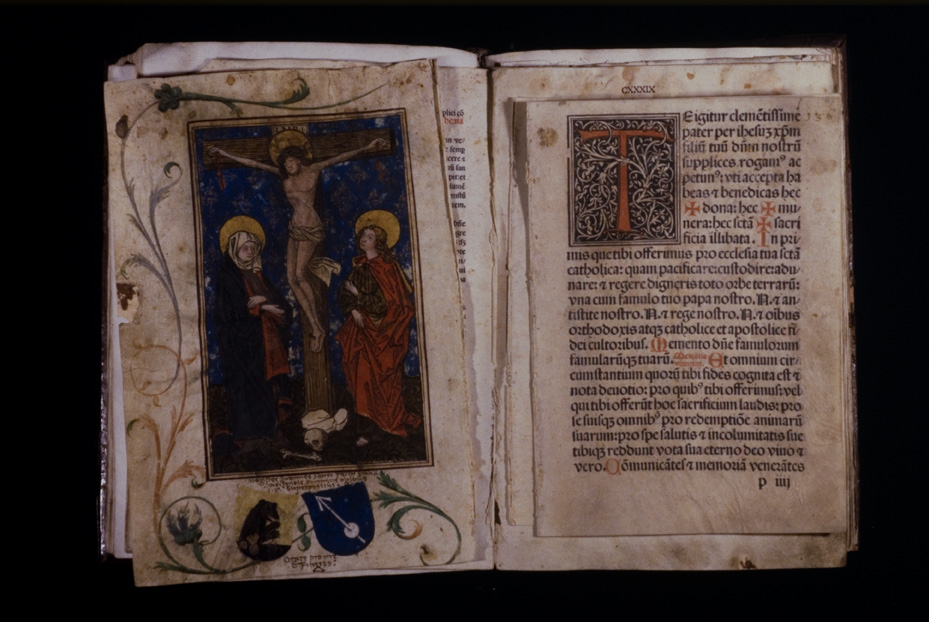 CXXXIX
T E igitur clemētissime
pater per ihesuz xpm̄
filiū tuū dn̄m nostrū
supplices.rogam⁹ ac
petim⁹:vti accepta ha
beas ⁊ benedicas hec
✠ dona: hec ✠ mu-
nera:hec sctā ✠ sacri
ficia illibata. In pri-
mis que tibi offerimus pro ecclesia tua sctā
catholica: quam pacificare:custodire:adu-
nare: ⁊ regere digneris toto orbe terrarū:
vna cum famulo tuo papa nostro. N. ⁊ an-
tistite nostro. N. ⁊ rege nostro. N. ⁊ oībus
orthodoxis atqz catholice et apostolice fi-
dei cultoribus. Memento dn̄e famulorum
famularūqz tuarū. Et omnium cir-
cumstantium quorū tibi fides cognita est ⁊
nota deuotio: pro quib⁹ tibi offerimus:vel
qui tibi offerūt hoc sacrificium laudis: pro
se suisqz omnib⁹ pro redemptiōe animarū
suarum:pro spe salutis ⁊ incolumitatis sue
tibiqz reddunt vota sua eterno deo viuo ⁊
vero. Cōmunicātes ⁊ memoriā venerātes
p iiij